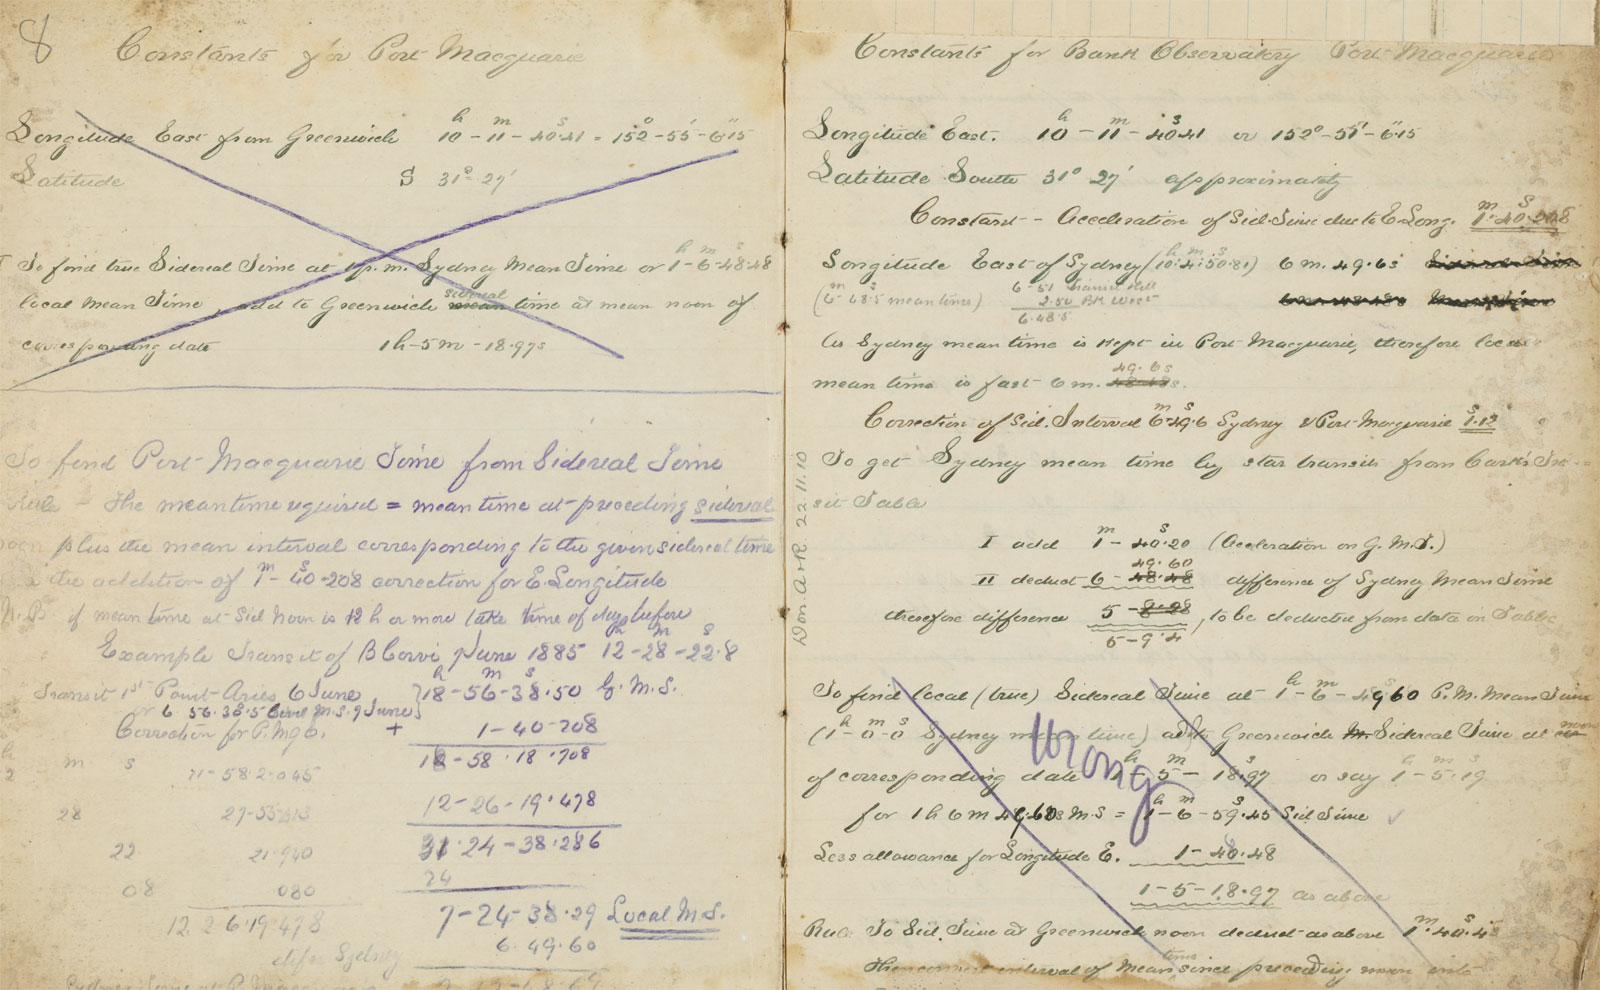 8
Constants for Port Macquarie
Longitude East from Greenwich 10h - 11m - 40.41s = 152° - 55' - 6".15
Latitude S 31° 27'
To find true Sidereal Time at 1 p.m. Sydney Mean Time or 1h - 6m - 48.48s
local Mean Time, add to Greenwich sidereal mean time at mean noon of
corresponding date 1h - 5m - 18.97s
To find Port Macquarie Time from Sidereal Time
Rule - The meantime required = mean time at preceding sidereal
noon plus the mean interval corresponding to the given sidereal time
the addition of 1m - 40.208s correction for E. Longitude
N.B. if mean time at Sid Noon is 12 h or more take time of day before
Example Transit of B Corvi 7 June 1885 12h - 28m - 22.8s
Transit 1st Point Aries 6 June } 18h - 56m - 38.50s G. M. S.
or 6. 56. 38.5 Civil M.S. 7 June
Correction for P. Mq E. + 1 - 40.208
h m s 18 - 58.18.708
12 11 - 58.2.045
12 - 26 - 19.478
28 27-55
31.24 - 38.286
22 21.940
24
08 080
12 26.19.478
7 - 24 - 38.29 Local M.S.
6.49.60
difce Sydney
Constants for Bank Observatory Port Macquarie
Longitude East. 10h - 11m - 40.41s or 152° - 55' - 6".15
Latitude South 31° 27' approximately
Constant - Acceleration of Sid. Time due to E. Long. 1m. 40.208s
Longitude East of Sydney (10h.4m.50.81s) 6 m. 49.6s
(6m - 48.5s mean time) 6 - 51 Transit Hill
2.50 Bk West
6.48.5
As Sydney mean time is kept in Port Macquarie, therefore local
mean time is fast 6 m. 48.48s. 49.6s
Correction of Sid. Interval 6m 49.6s Sydney & Port Macquarie 1.12s
To get Sydney mean time by star transits from Clark's Tran-
sit Table
Don A. R. 22.11.10
I add 1m - 40.20s (Acceleration on G. M. T.)
49.60
II deduct 6 - 48.48 difference of Sydney Mean Time
therefore difference 5 - 8.28, to be deducted from data in Table
5 - 9.4
To find local (true) Sidereal Time at 1h - 6m - 49.60 P. M. Mean Time
(1h - 0m - 0s Sydney mean time) add to Greenwich M. Sidereal Time at noon
of corresponding date 1h - 5m - 18.97s or say 1h - 5m. 19s
Wrong
for 1h 6m 49.60s M.S = 1h - 6m - 59.45s Sid Time ✓
Less allowance for Longitude E. 1 - 40.48
1 - 5 - 18.97 as above
Rule To Sid. Time at Greenwich noon deduct as above 1m. 40.4s
Then convert interval of Mean time since preceding noon into